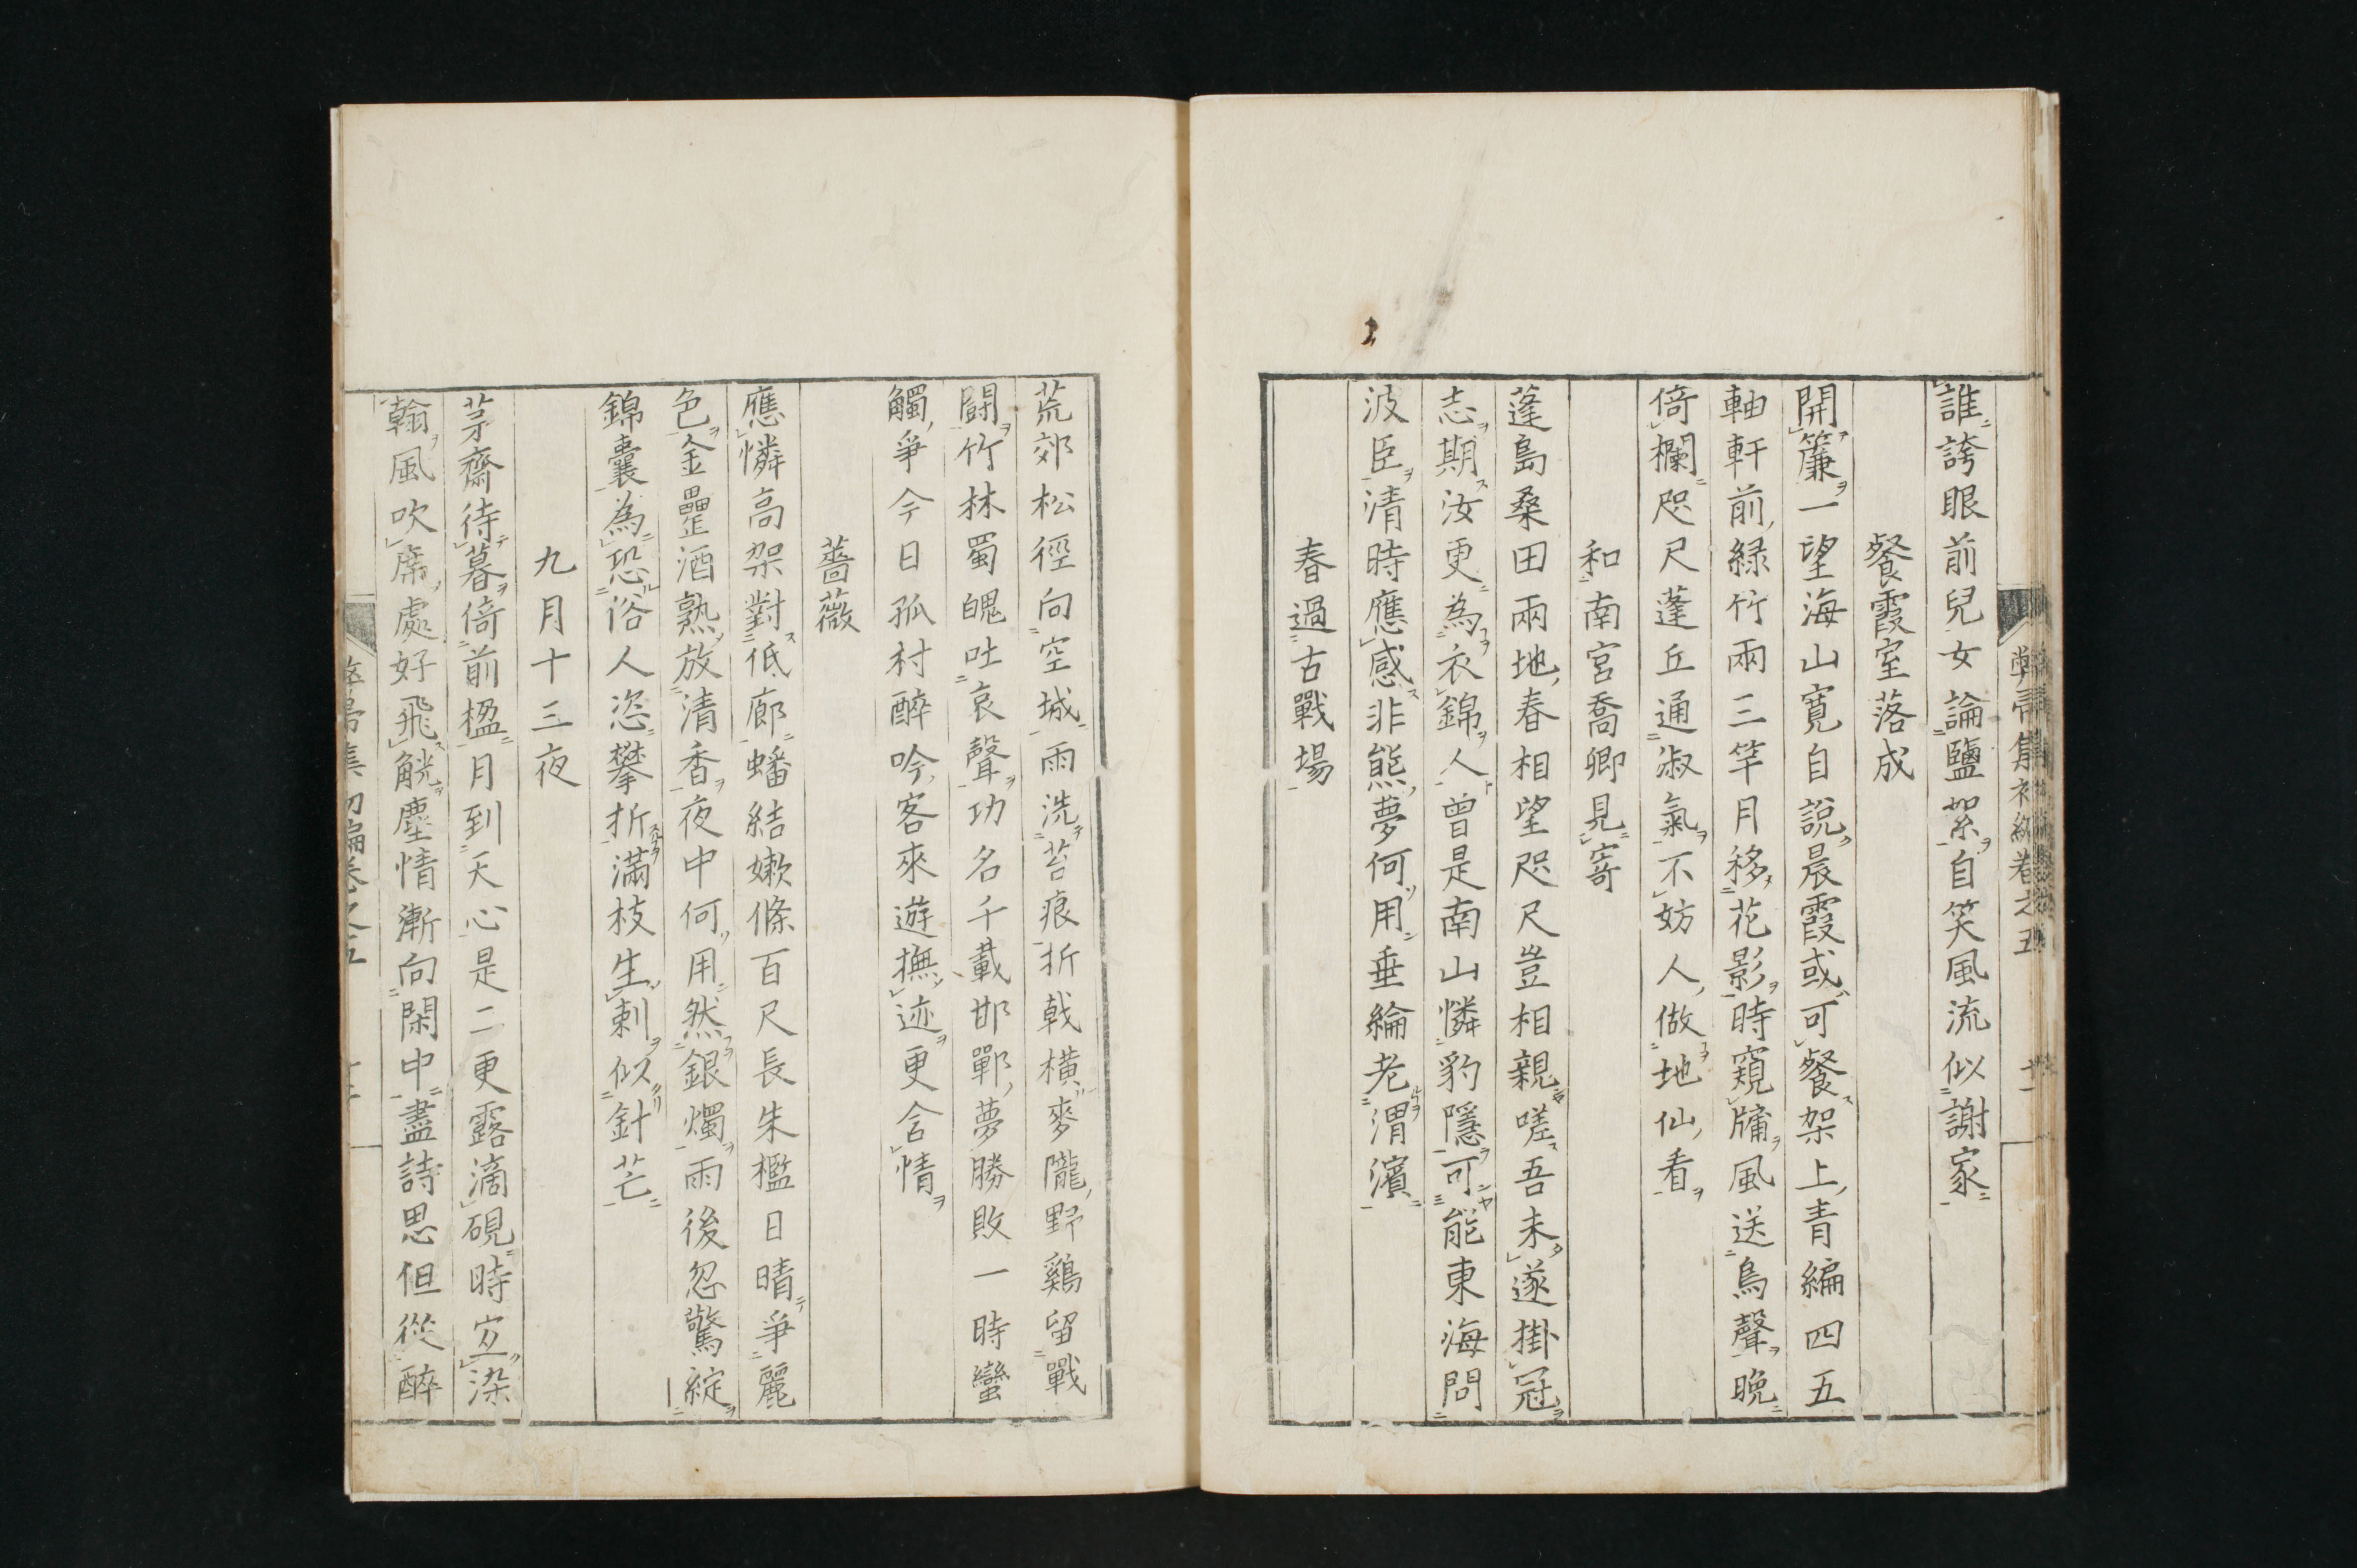 誰誇眼前兒女論鹽絮自笑風流似謝家
餐霞室落成
開簾一望海山寬自說晨霞或可餐架上青編四五
軸軒前綠竹兩三竿月移花影時窺牖風送鳥聲晚
倚欄咫尺蓬丘通淑氣不妨人做地仙看
和南宮喬卿見寄
蓬島桑田兩地春相望咫尺豈相親嗟吾未遂掛冠
志期汝更為衣錦人曾是南山憐豹隱可能東海問
波臣清時應感非熊夢何用垂綸老渭濱
春過古戰場
荒郊松徑向空城雨洗苔痕折戟橫麥隴野鷄留戰
鬪竹林蜀魄吐哀聲功名千載邯鄲夢勝敗一時蠻
觸爭今日孤村醉吟客來遊撫迹更含情
薔薇
應憐高架對低廊蟠結嫩條百尺長朱檻日晴爭麗
色金罍酒熟放清香夜中何用然銀燭雨後忽驚綻
錦囊為恐俗人恣攀折滿枝生刺似針芒
九月十三夜
茅齋待暮倚前楹月到天心是二更露滴硯時宜染
翰風吹席處好飛觥塵情漸向閑中盡詩思但從醉
集初編卷之五